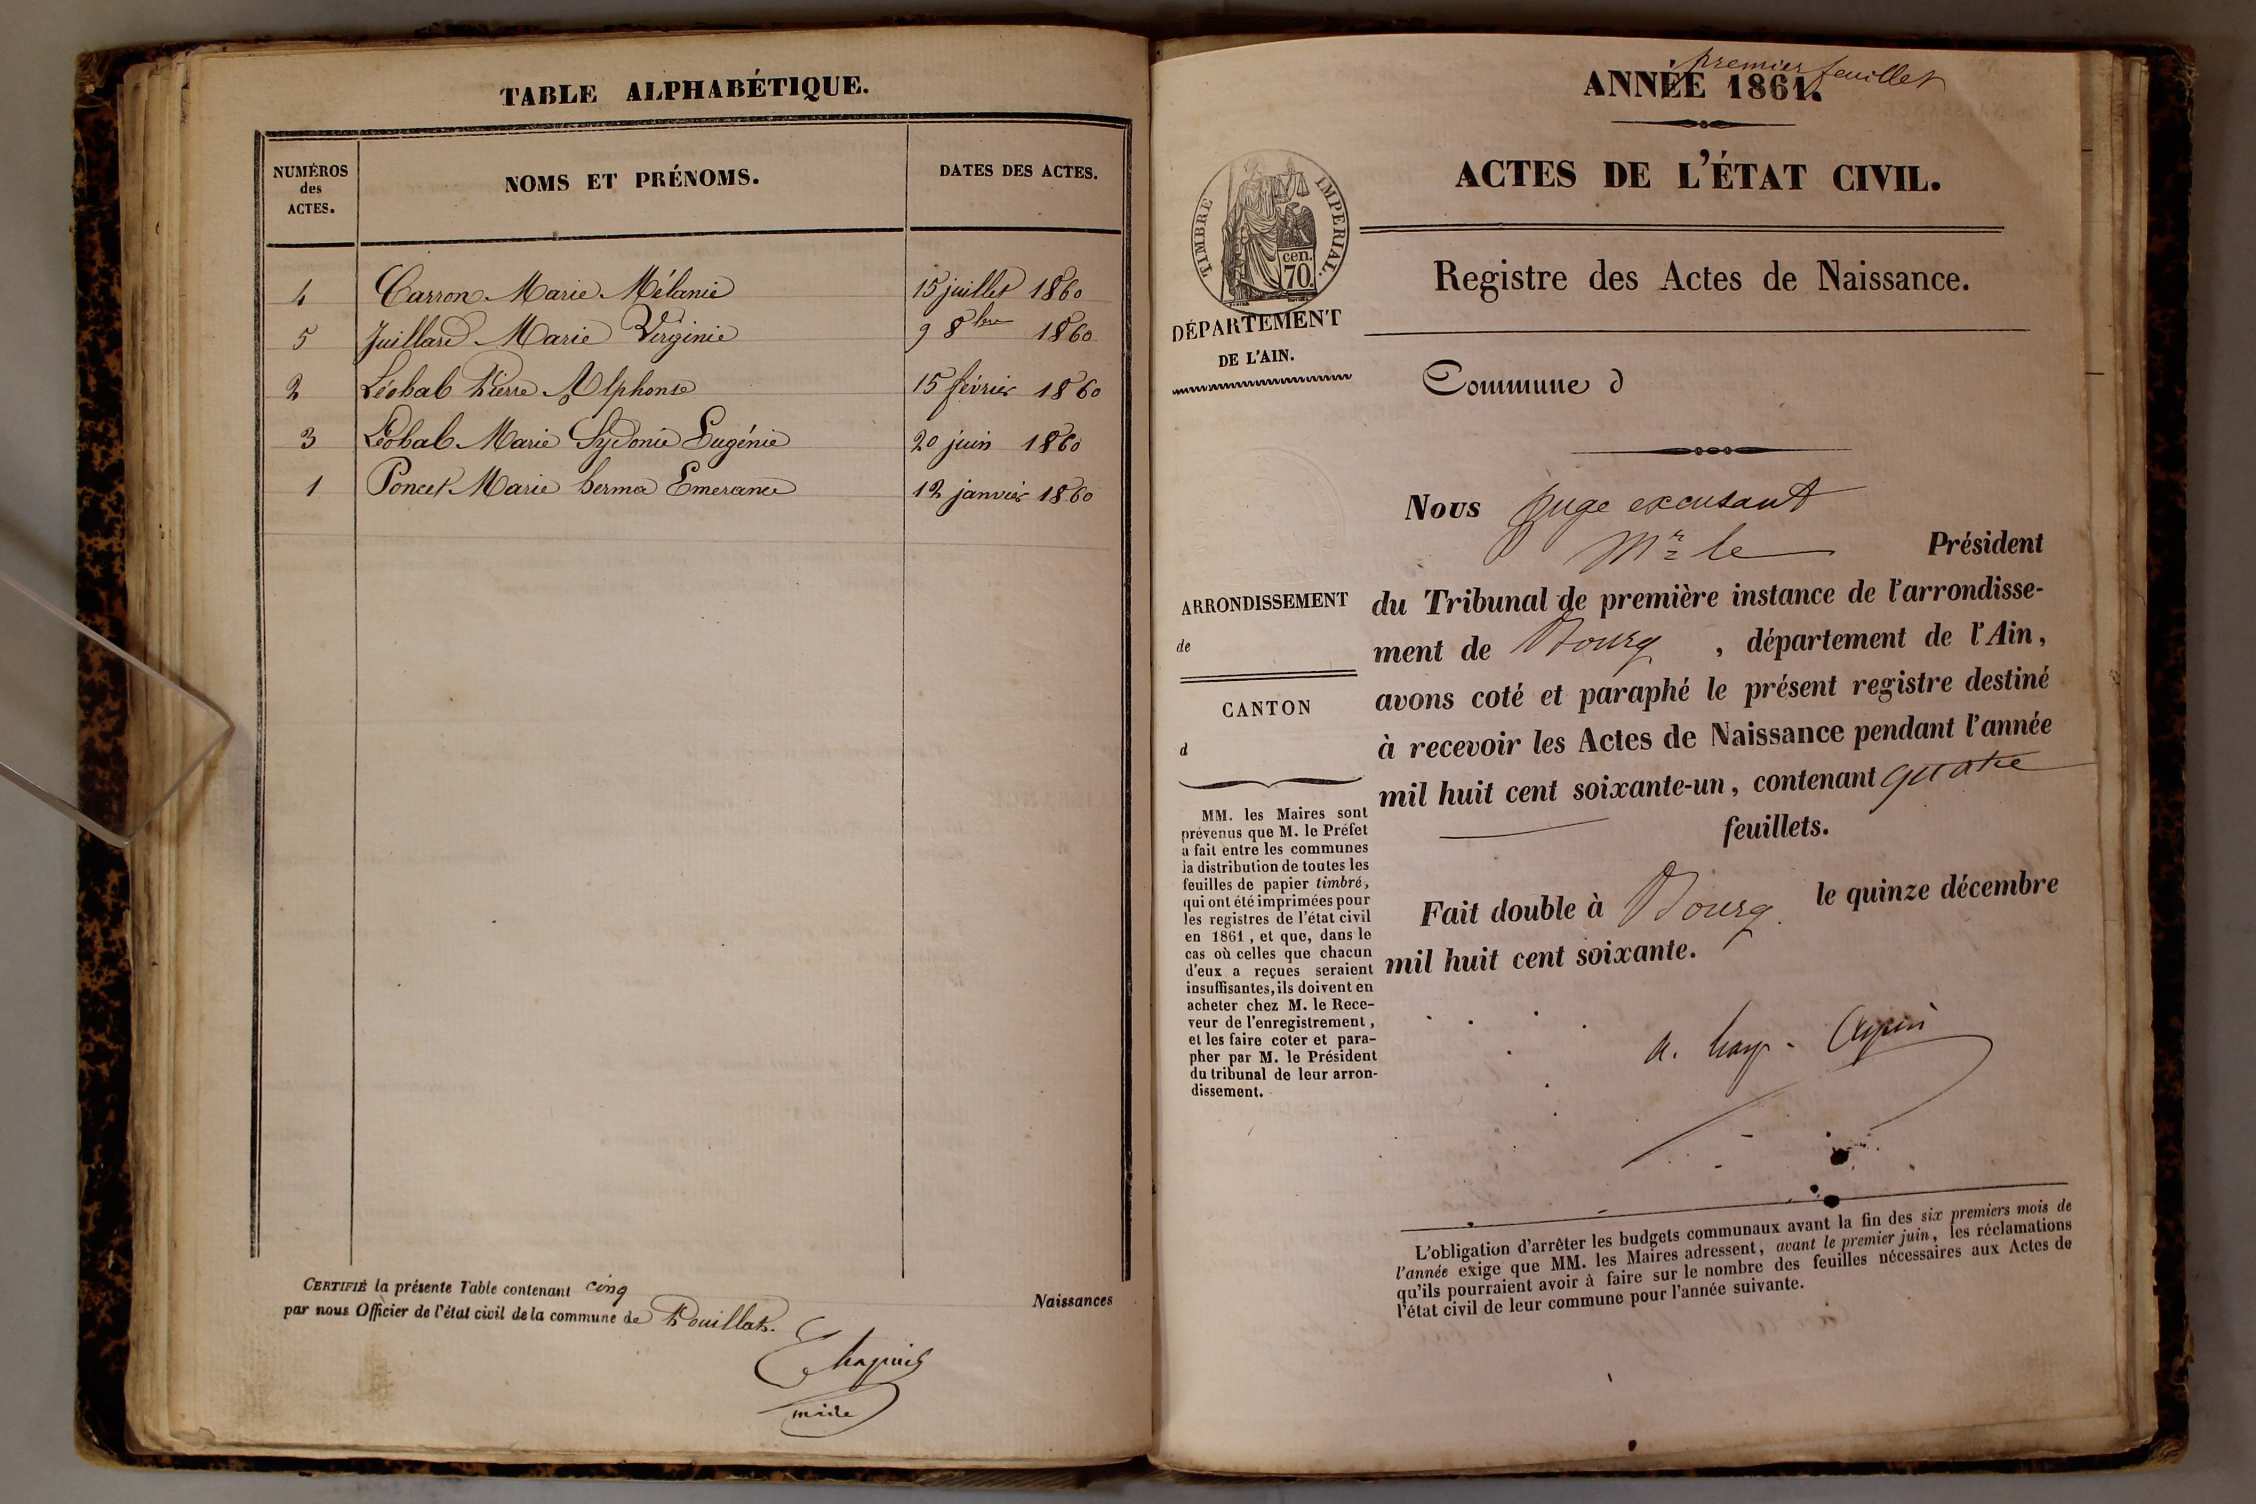 TABLE ALPHABÉTIQUE.
NUMÉROS des ACTES.
NOMS ET PRÉNOMS.
DATES DES ACTES.
4 Carron Marie Mélanie 15 juillet 1860
5 Juillard Marie Virginie 9 8bre 1860
2 Léobal Pierre Alphonse 15 février 1860
3 Léobal Marie Sydonie Eugénie 20 juin 1860
1 Poncet Marie herma Emerance 12 janvier 1860
CERTIFIÉ la présente Table contenant cinq Naissances
par nous Officier de l'état civil de la commune de Pouillat.
Chapuis
premier feuillet
ANNÉE 1861.
ACTES DE L'ÉTAT CIVIL.
TIMBRE IMPERIAL.
cen.
70.
DÉPARTEMENT
DE L'AIN.
Registre des Actes de Naissance.
Commune d
Nous juge excusant
Mr le Président
ARRONDISSEMENT
de
CANTON
d
du Tribunal de première instance de l'arrondisse-
ment de Bourg, département de l'Ain,
avons coté et paraphé le présent registre destiné
à recevoir les Actes de Naissance pendant l'année
mil huit cent soixante-un, contenant quatre
feuillets.
Fait double à Bourg le quinze décembre
mil huit cent soixante.
MM. les Maires sont
prévenus que M. le Préfet
a fait entre les communes
la distribution de toutes les
feuilles de papier timbré,
qui ont été imprimées pour
les registres de l'état civil
en 1861, et que, dans le
cas où celles que chacun
d'eux a reçues seraient
insuffisantes, ils doivent en
acheter chez M. le Rece-
veur de l'enregistrement,
et les faire coter et para-
pher par M. le Président
du tribunal de leur arron-
dissement.
L'obligation d'arrêter les budgets communaux avant la fin des six premiers mois de
l'année exige que MM. les Maires adressent, avant le premier juin, les réclamations
qu'ils pourraient avoir à faire sur le nombre des feuilles nécessaires aux Actes de
l'état civil de leur commune pour l'année suivante.